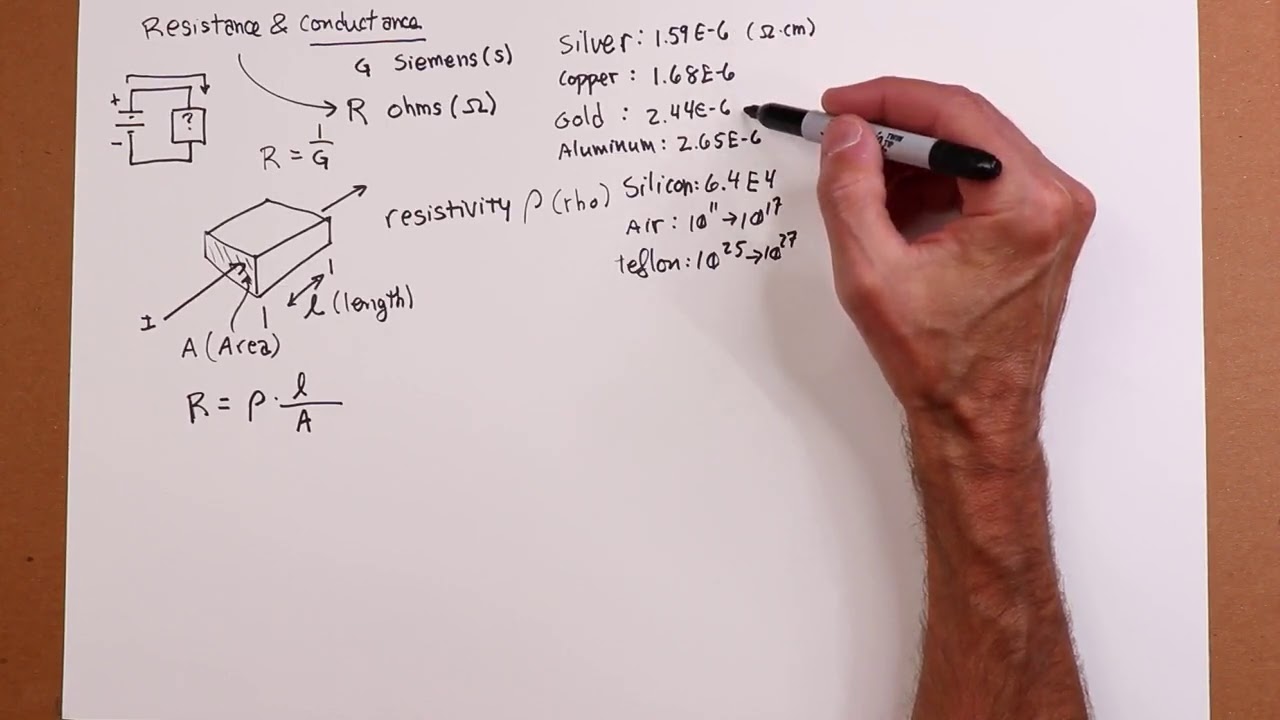 Resistance & Conductance
G Siemens (s)
R ohms (Ω)
R = 1/G
+
-
?
I
A (Area)
l (length)
R = ρ · l/A
resistivity ρ (rho)
Silver: 1.59E-6 (Ω·cm)
Copper: 1.68E-6
Gold: 2.44E-6
Aluminum: 2.65E-6
Silicon: 6.4E4
Air: 10¹¹→10¹⁷
teflon: 10²⁵→10²⁷